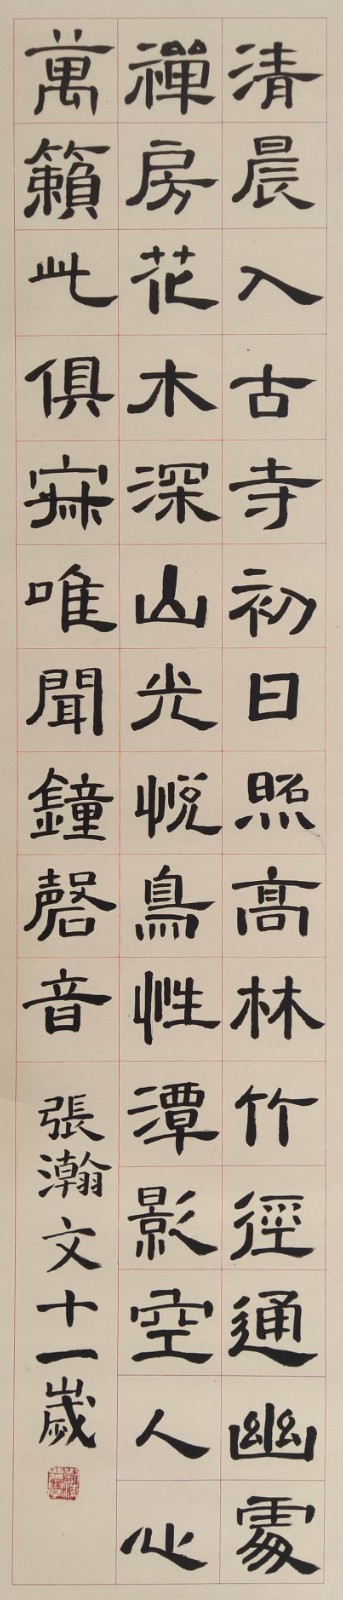 清晨入古寺初日照高林竹徑通幽處
禪房花木深山光悅鳥性潭影空人心
萬籟此俱寂唯聞鐘磬音
張瀚文十一歲